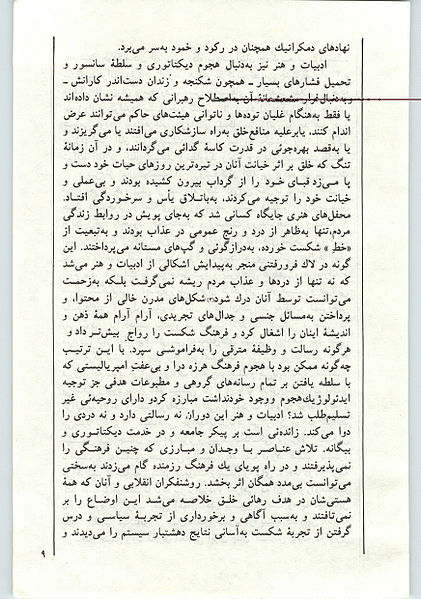 نهادهای دمکراتیك همچنان در رکود و خمود به‌سر می‌برد.
ادبیات و هنر نیز به‌دنبال هجوم دیکتاتوری و سلطهٔ سانسور و
تحمیل فشارهای بسیار ـ همچون شکنجه و زندان دست‌اندر کارانش ـ
و به‌دنبال فرار مشعشعانهٔ آن به‌اصطلاح رهبرانی که همیشه نشان داده‌اند
یا فقط به‌هنگام غلیان توده‌ها و ناتوانی هیئت‌های حاکم می‌توانند عرض
اندام کنند، یا برعلیه منافع خلق به‌راه سازشکاری می‌افتند یا می‌گریزند و
یا به‌قصد بهره‌جوئی در قدرت کاسهٔ گدائی می‌گردانند، و در آن زمانهٔ
تنگ که خلق بر اثر خیانت آنان در تیره‌ترین روزهای حیات خود دست و
پا می‌زد قبای خود را از گرداب بیرون کشیده بودند و بی‌عملی و
خیانت خود را توجیه می‌کردند، به‌باتلاق یأس و سرخوردگی افتاد.
محفل‌های هنری جایگاه کسانی شد که به‌جای پویش در روابط زندگی
مردم،تنها به‌ظاهر از درد و رنج عمومی در عذاب بودند و به‌تبعیت از
«خط» شکست خورده، به‌درازگوئی و گپ‌های مستانه می‌پرداختند. این
گونه در لاك فرورفتنی منجر به‌پیدایش اشکالی از ادبیات و هنر می‌شد
که نه تنها از دردها و عذاب مردم ریشه نمی‌گرفت بلکه به‌زحمت
می‌توانست توسط آنان درك شود،شکل‌های مدرن خالی از محتوا، و
پرداختن به‌مسائل جنسی و جدال‌های تجریدی، آرام آرام همهٔ ذهن و
اندیشهٔ اینان را اشغال کرد و فرهنگ شکست را رواج بیش‌تر داد و
هرگونه رسالت و وظیفهٔ مترقی را به‌فراموشی سپرد. با این ترتیب
چه‌گونه ممکن بود با هجوم فرهنگ هرزه درا و بی‌عفت امپریالیستی که
با سلطه یافتن بر تمام رسانه‌های گروهی و مطبوعات هدفی جز توجیه
ایدئولوژیك‌هجوم و‌وجود خودنداشت مبارزه کردو دارای روحیه‌ئی غیر
تسلیم‌طلب شد؟ ادبیات و هنر این دوران نه رسالتی دارد و نه دردی را
دوا می‌کند. زائده‌ئی است بر پیکر جامعه و در خدمت دیکتاتوری و
بیگانه. تلاش عناصر با وجدان و مبارزی که چنین فرهنگی را
نمی‌پذیرفتند و در راه پویای یك فرهنگ رزمنده گام می‌زدند به‌سختی
می‌توانست بی‌مدد همگان اثر بخشد. روشنفکران انقلابی و آنان که همهٔ
هستی‌شان در هدف رهائی خلق خلاصه می‌شد این اوضاع را بر
نمی‌تافتند و به‌سبب آگاهی و برخورداری از تجربهٔ سیاسی و درس
گرفتن از تجربهٔ شکست به‌آسانی نتایج دهشتبار سیستم را می‌دیدند و
۹